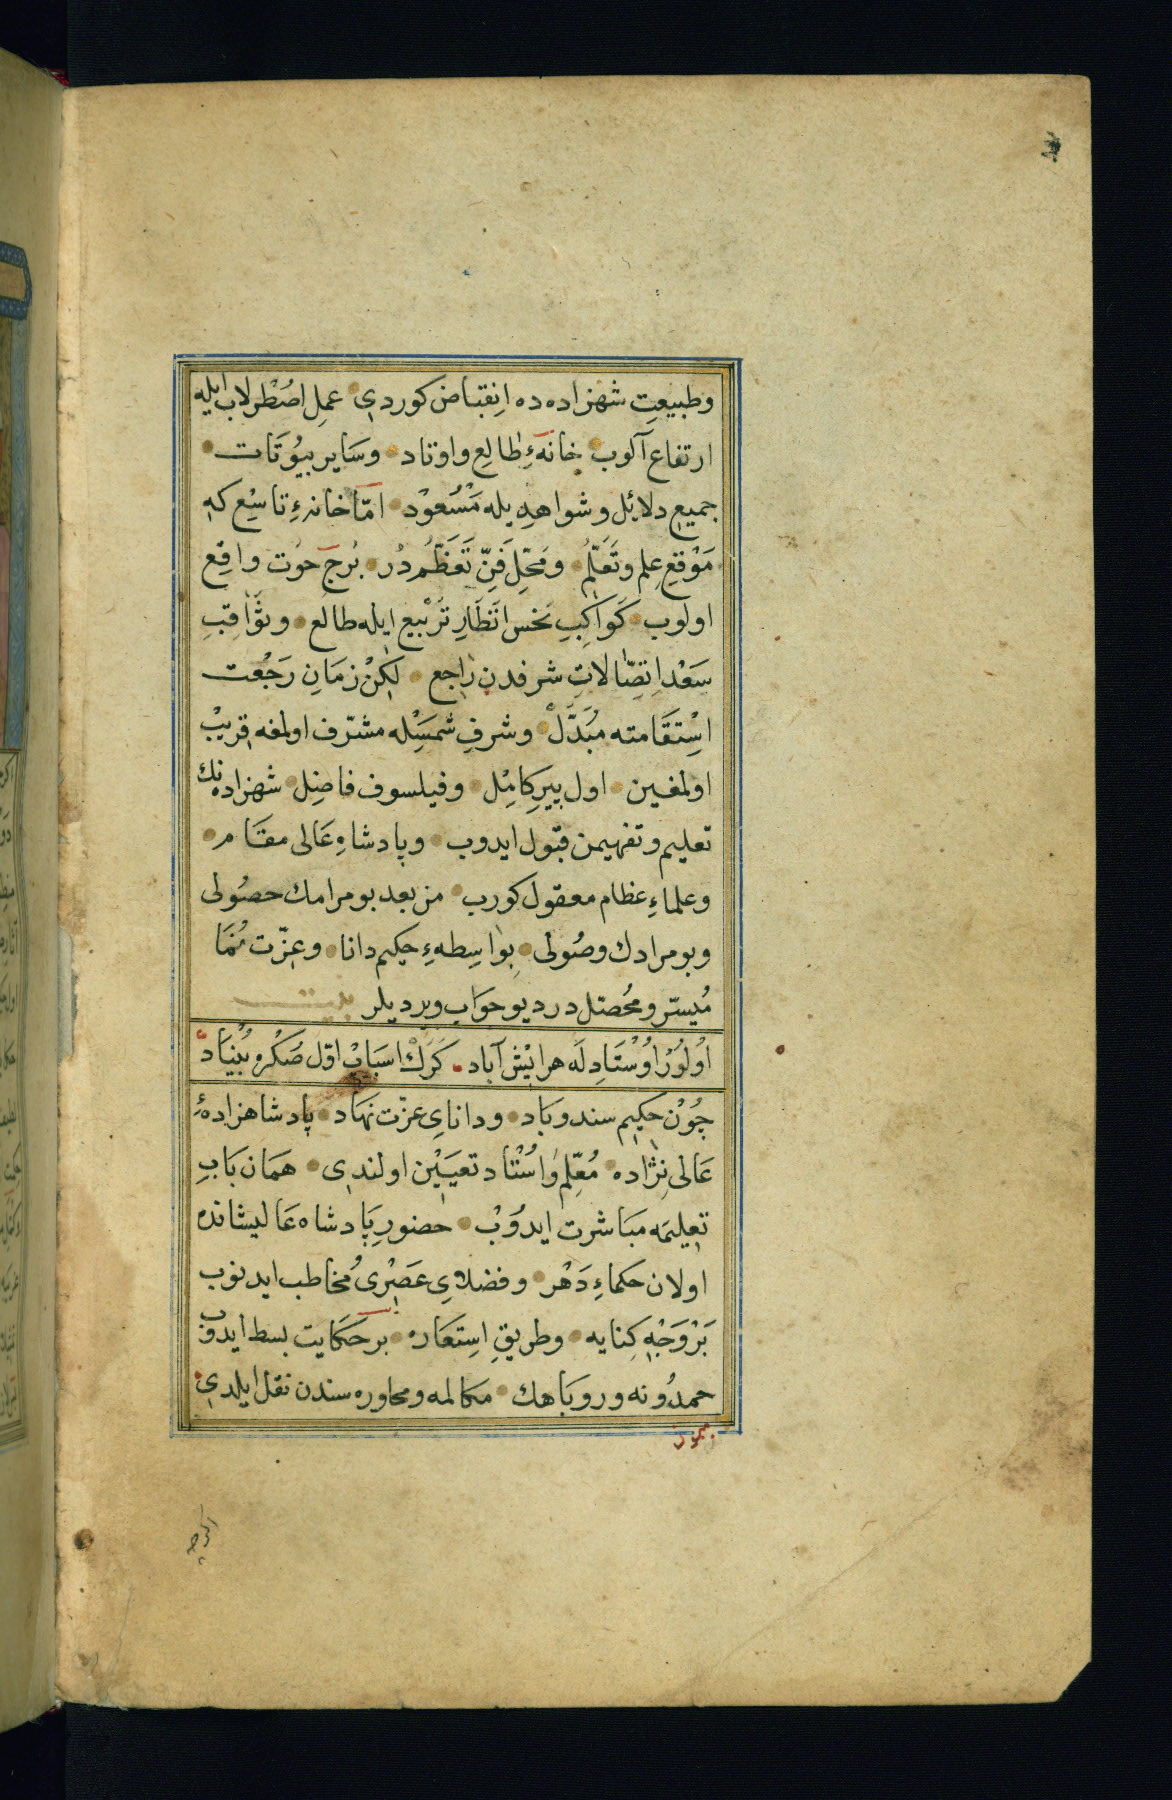 وطبیعتِ شهزاده ده اِنقباض كوردی عمل اصُطرلاب ایله
ارتفاع آلوب خانهٔ طالِع واوتاد وسَایر بیُوتَات
جمیع دلائل وشواهد یله مَسْعُوْد امّا خانهٔ تاسِع که
مَوْقِعِ علم وتَعَلّم ومحَلِ فَنِّ تَعَظّم دُر بُرجِ حوُت واقِع
اولوب كَوَاكِبِ نحس اَنظَارِ تَرْبیع ایله طالع وثَوَاقبِ
سَعْد اِتصّالاتِ شرفدن رٰاجع لٰكِنْ زمَانِ رَجْعت
اسْتِقَامته مبُدَّلْ وشرفِ شمسَیله مشرّف اولمغه قریبْ
اولمغین اول پیرِ كامِل وفیلسوف فاضِل شهزاده نك
تعلیم وتفهیمن قبٓول ایدوب وپادشاهِ عَالی مقَام
وعلماءِ عظام معقول كورب من بعد بو مرامك حصُولی
وبو مرادك وصُولی بِواسِطهءِ حكیم دانا وعِزّت نُمَا
مُیسّر ومحُصتل در دیو جوَاب ویردیلر
بیت
اوُلوُرْ اوُسْتَادِ لَه هر ایْش آباد كَرَكْ اسبَابْ اوّل صَكْره بُنیَاد
چُوْن حكیِم سندوبَاد ودانایِ عزّت نهَاد پادشاهزادهٔ
عَالی نِژاده مُعِّلم وُاسُتْاد تعیَیْن اولندی همَان بَابِ
تعلیمَه مبَاشرت ایدوُبْ حضورِ پَادشاه عَالیشانده
اولان حكماءِ دَهْر وفضلاءِ عَصِرْیُ مُخاطب ایدنوب
بَرْوَجْهِ كِنایه وطریقِ اِستعَاره بر حَكَایت بسط ایدوب
حمدوُنه وروبَاهك مكالمه ومحاوره سندن نقل ایلدی
اكرچه